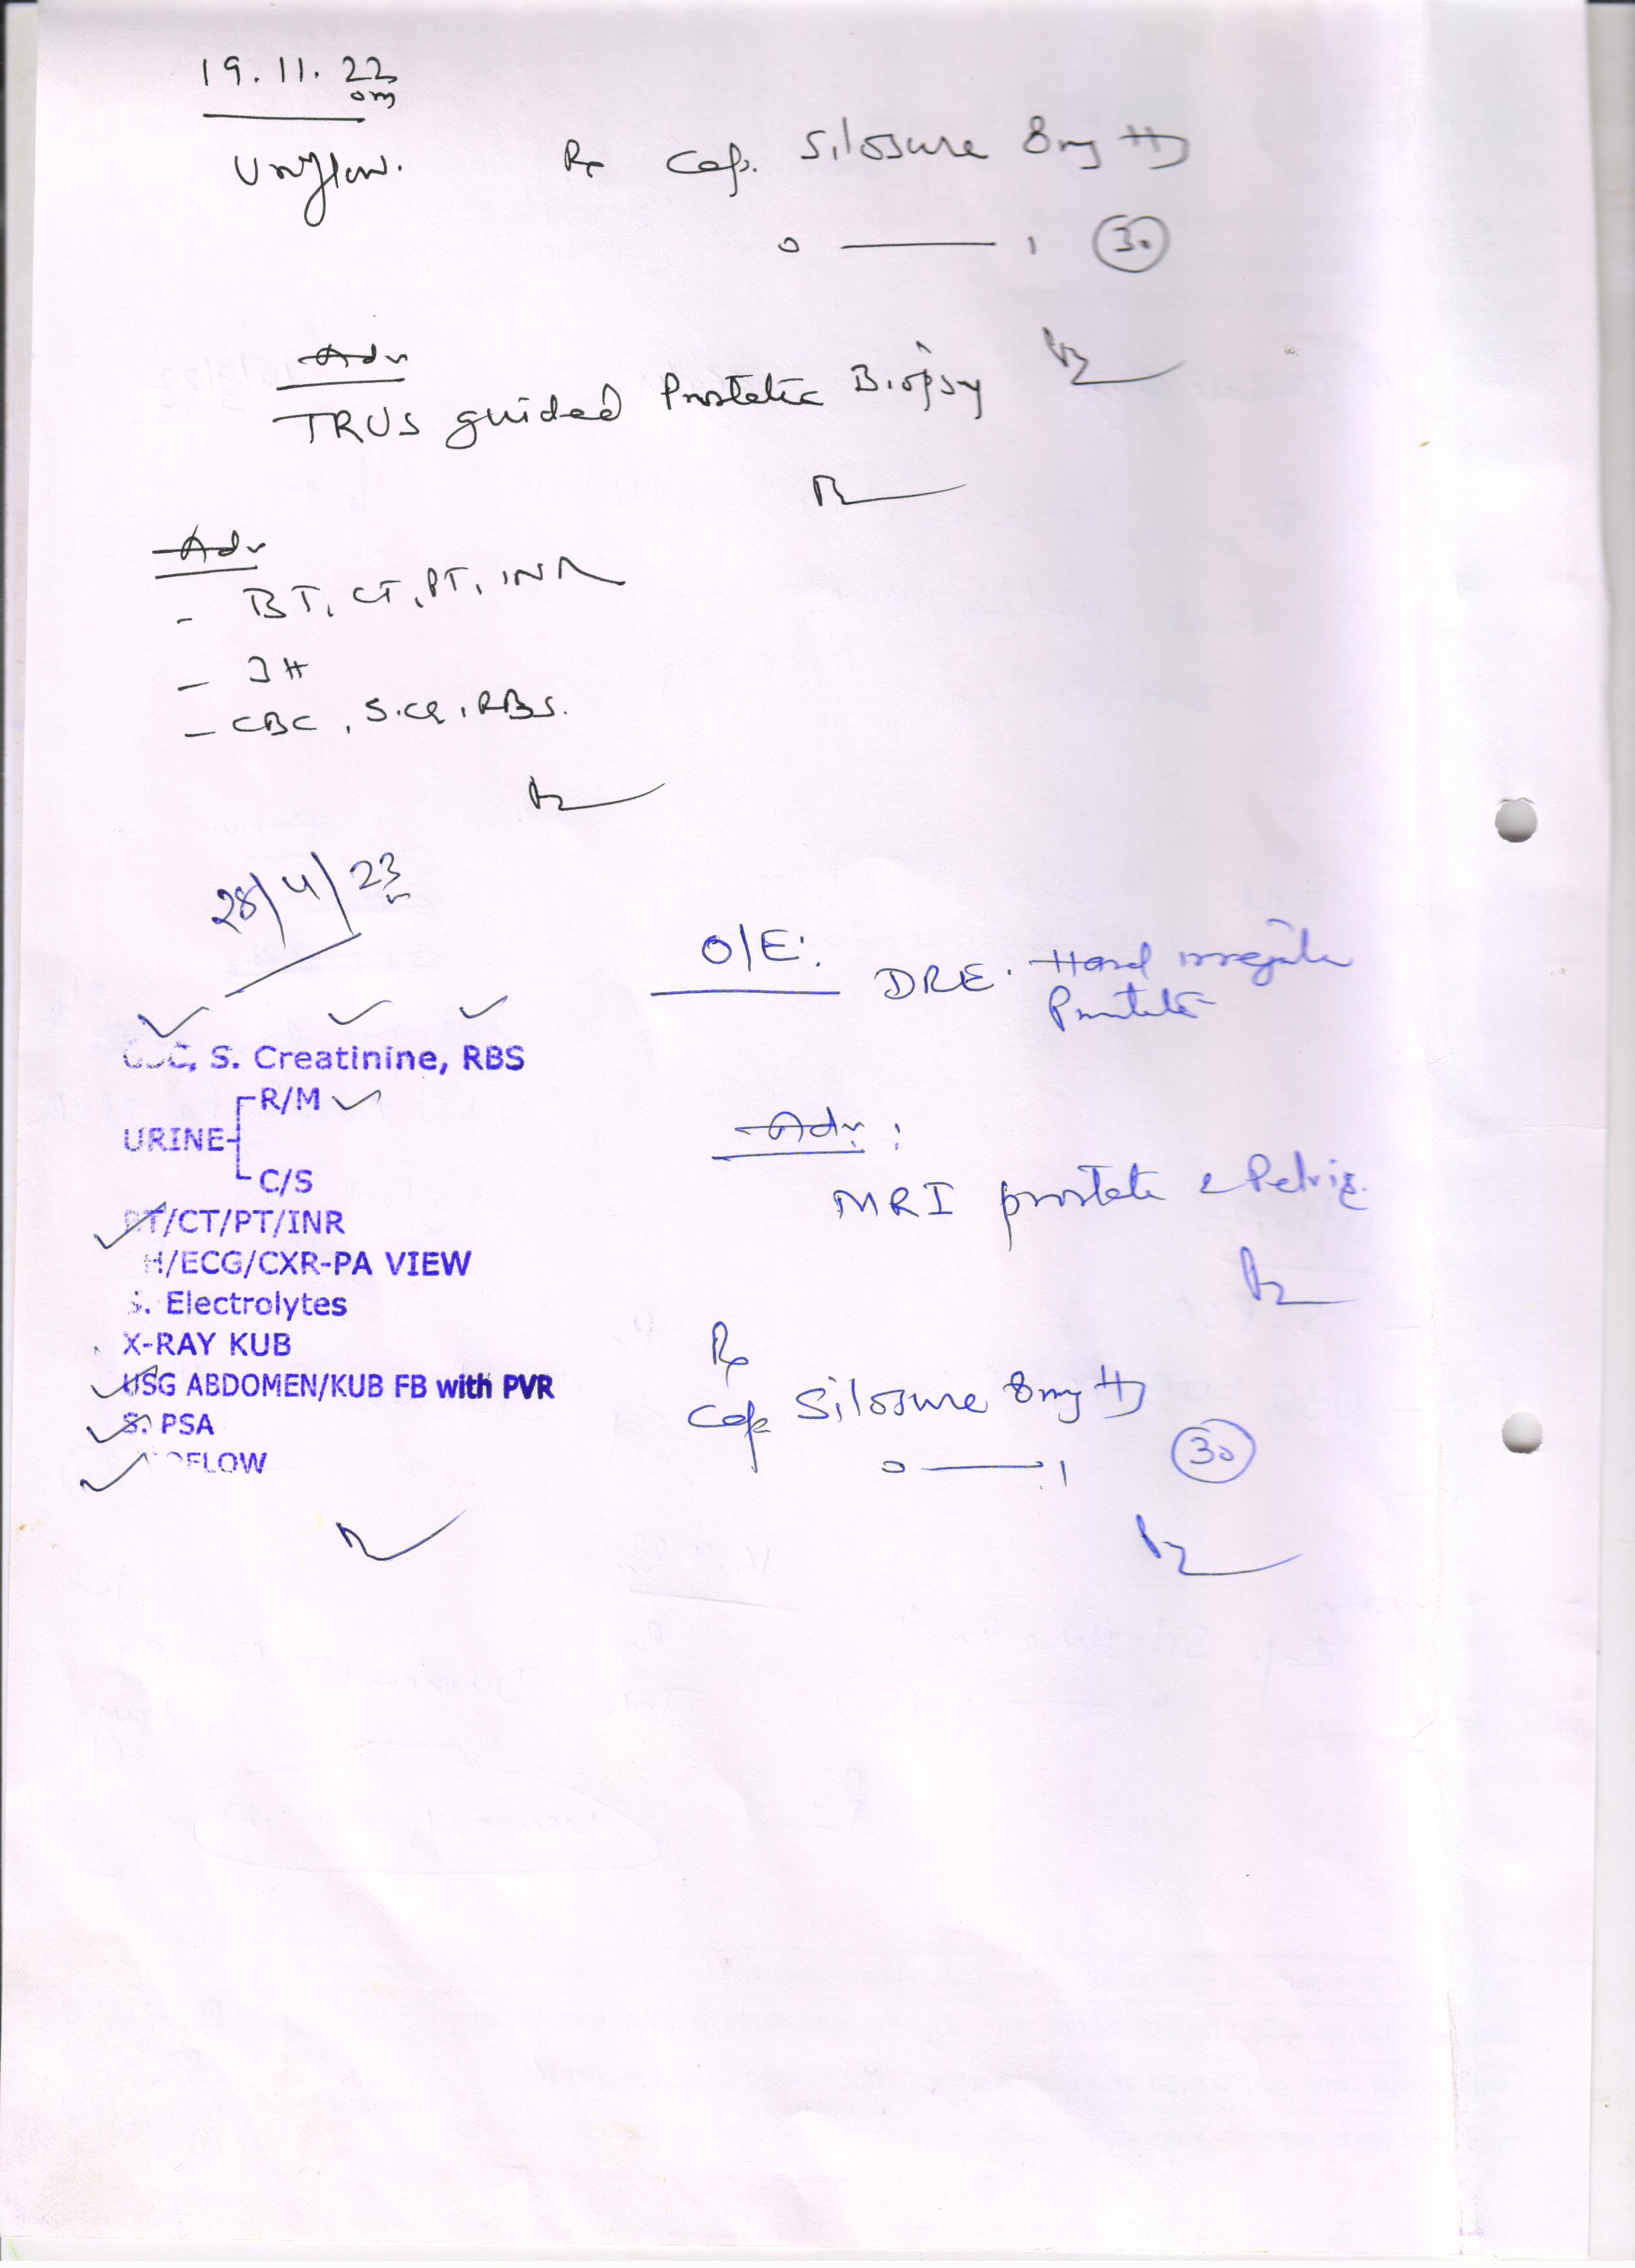 19.11.22
om
Uroflow.
Rx Cap. Silosure 8mg
0 —— 1 (30)
Adv
TRUS guided Prostatic Biopsy
Adv
- BT, CT, PT, INR
- 3H
- CBC, S.CR, RBS.
28/4/23
CBC, S. Creatinine, RBS
URINE
R/M
C/S
BT/CT/PT/INR
H/ECG/CXR-PA VIEW
S. Electrolytes
X-RAY KUB
USG ABDOMEN/KUB FB with PVR
S. PSA
OFLOW
O/E:
DRE. Hard irregular
Prostate
Adv:
MRI prostate & Pelvis.
Rx
Cap Silosure 8mg
0 —— 1 (30)